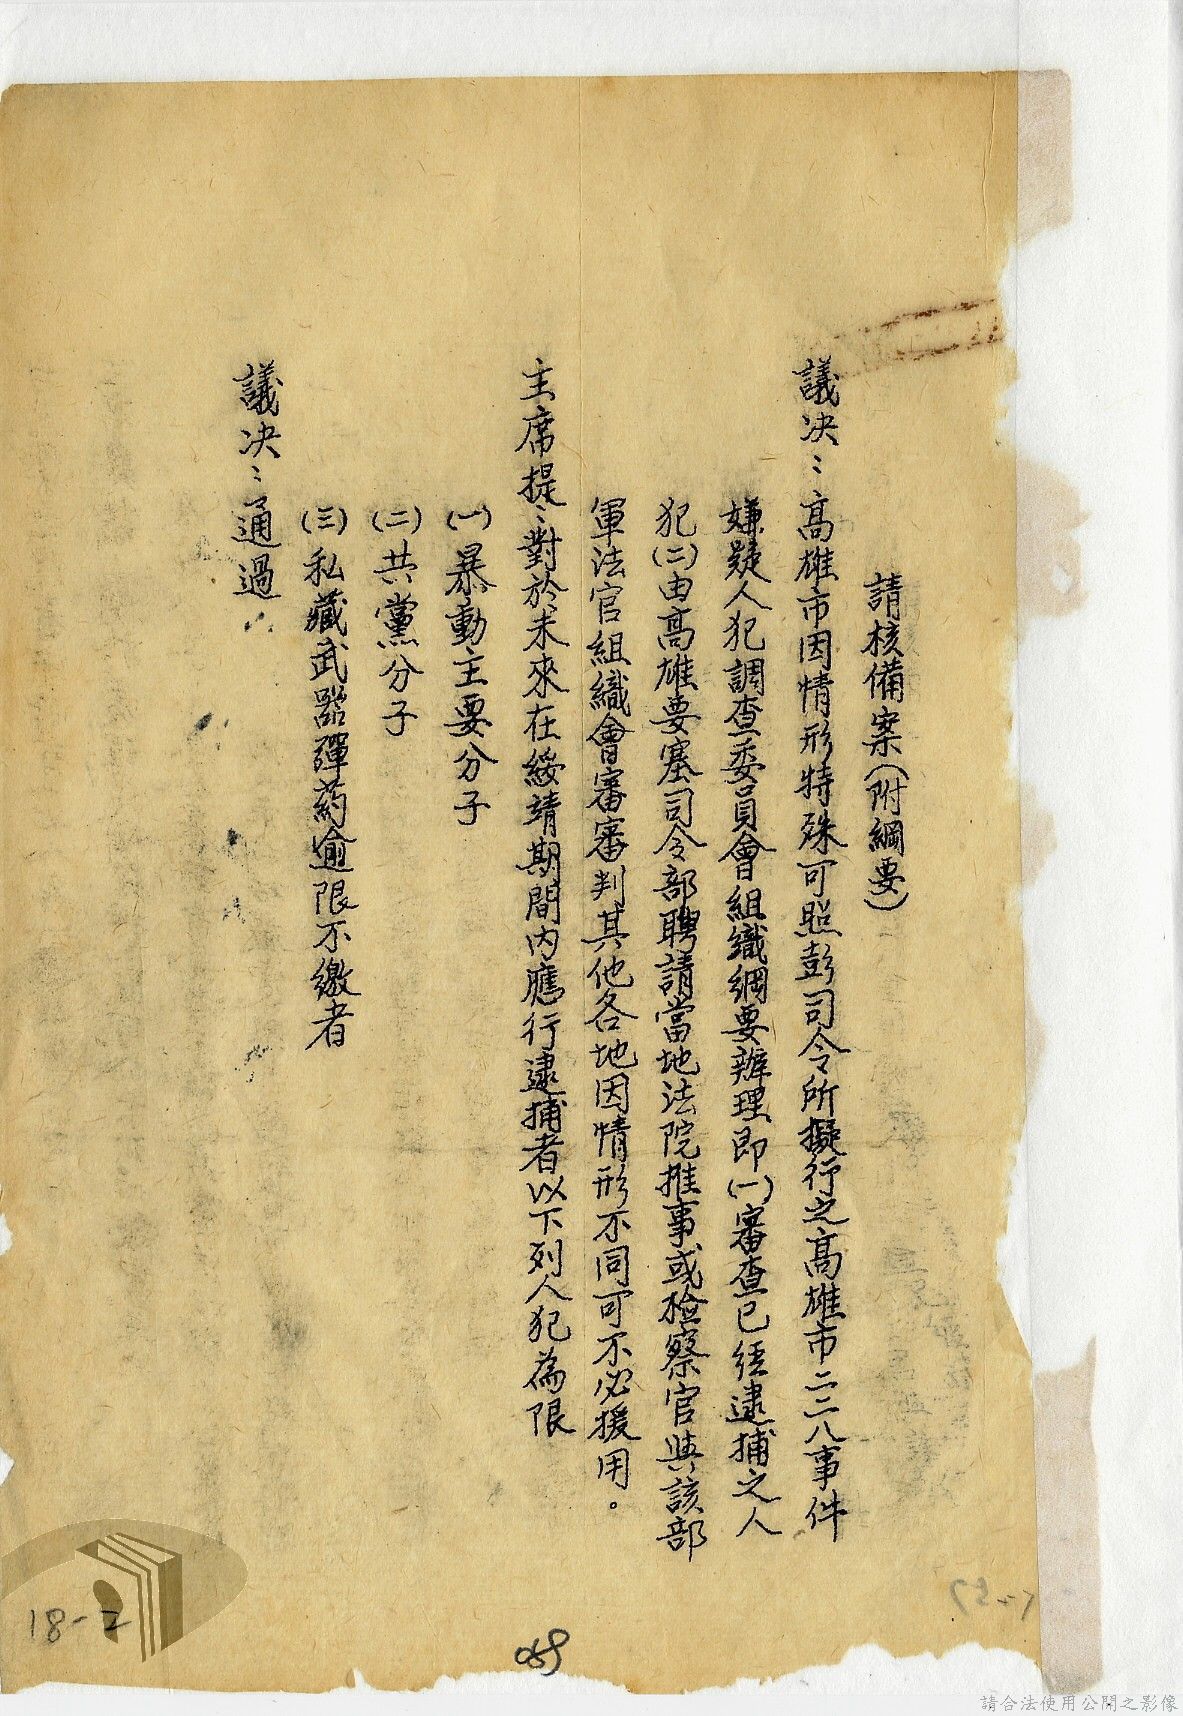 請核備案(附綱要)
議決：高雄市因情形特殊可照彭司令所擬行之高雄市二二八事件
嫌疑人犯調查委員會組織綱要辦理即(一)審查已經逮捕之人
犯(二)由高雄要塞司令部聘請當地法院推事或檢察官與該部
軍法官組織會審審判其他各地因情形不同可不必援用。
主席提：對於未來在綏靖期間內應行逮捕者以下列人犯為限
(一)暴動主要分子
(二)共黨分子
(三)私藏武器彈葯逾限不繳者
議決：通過
18-2
069
請合法使用公開之影像